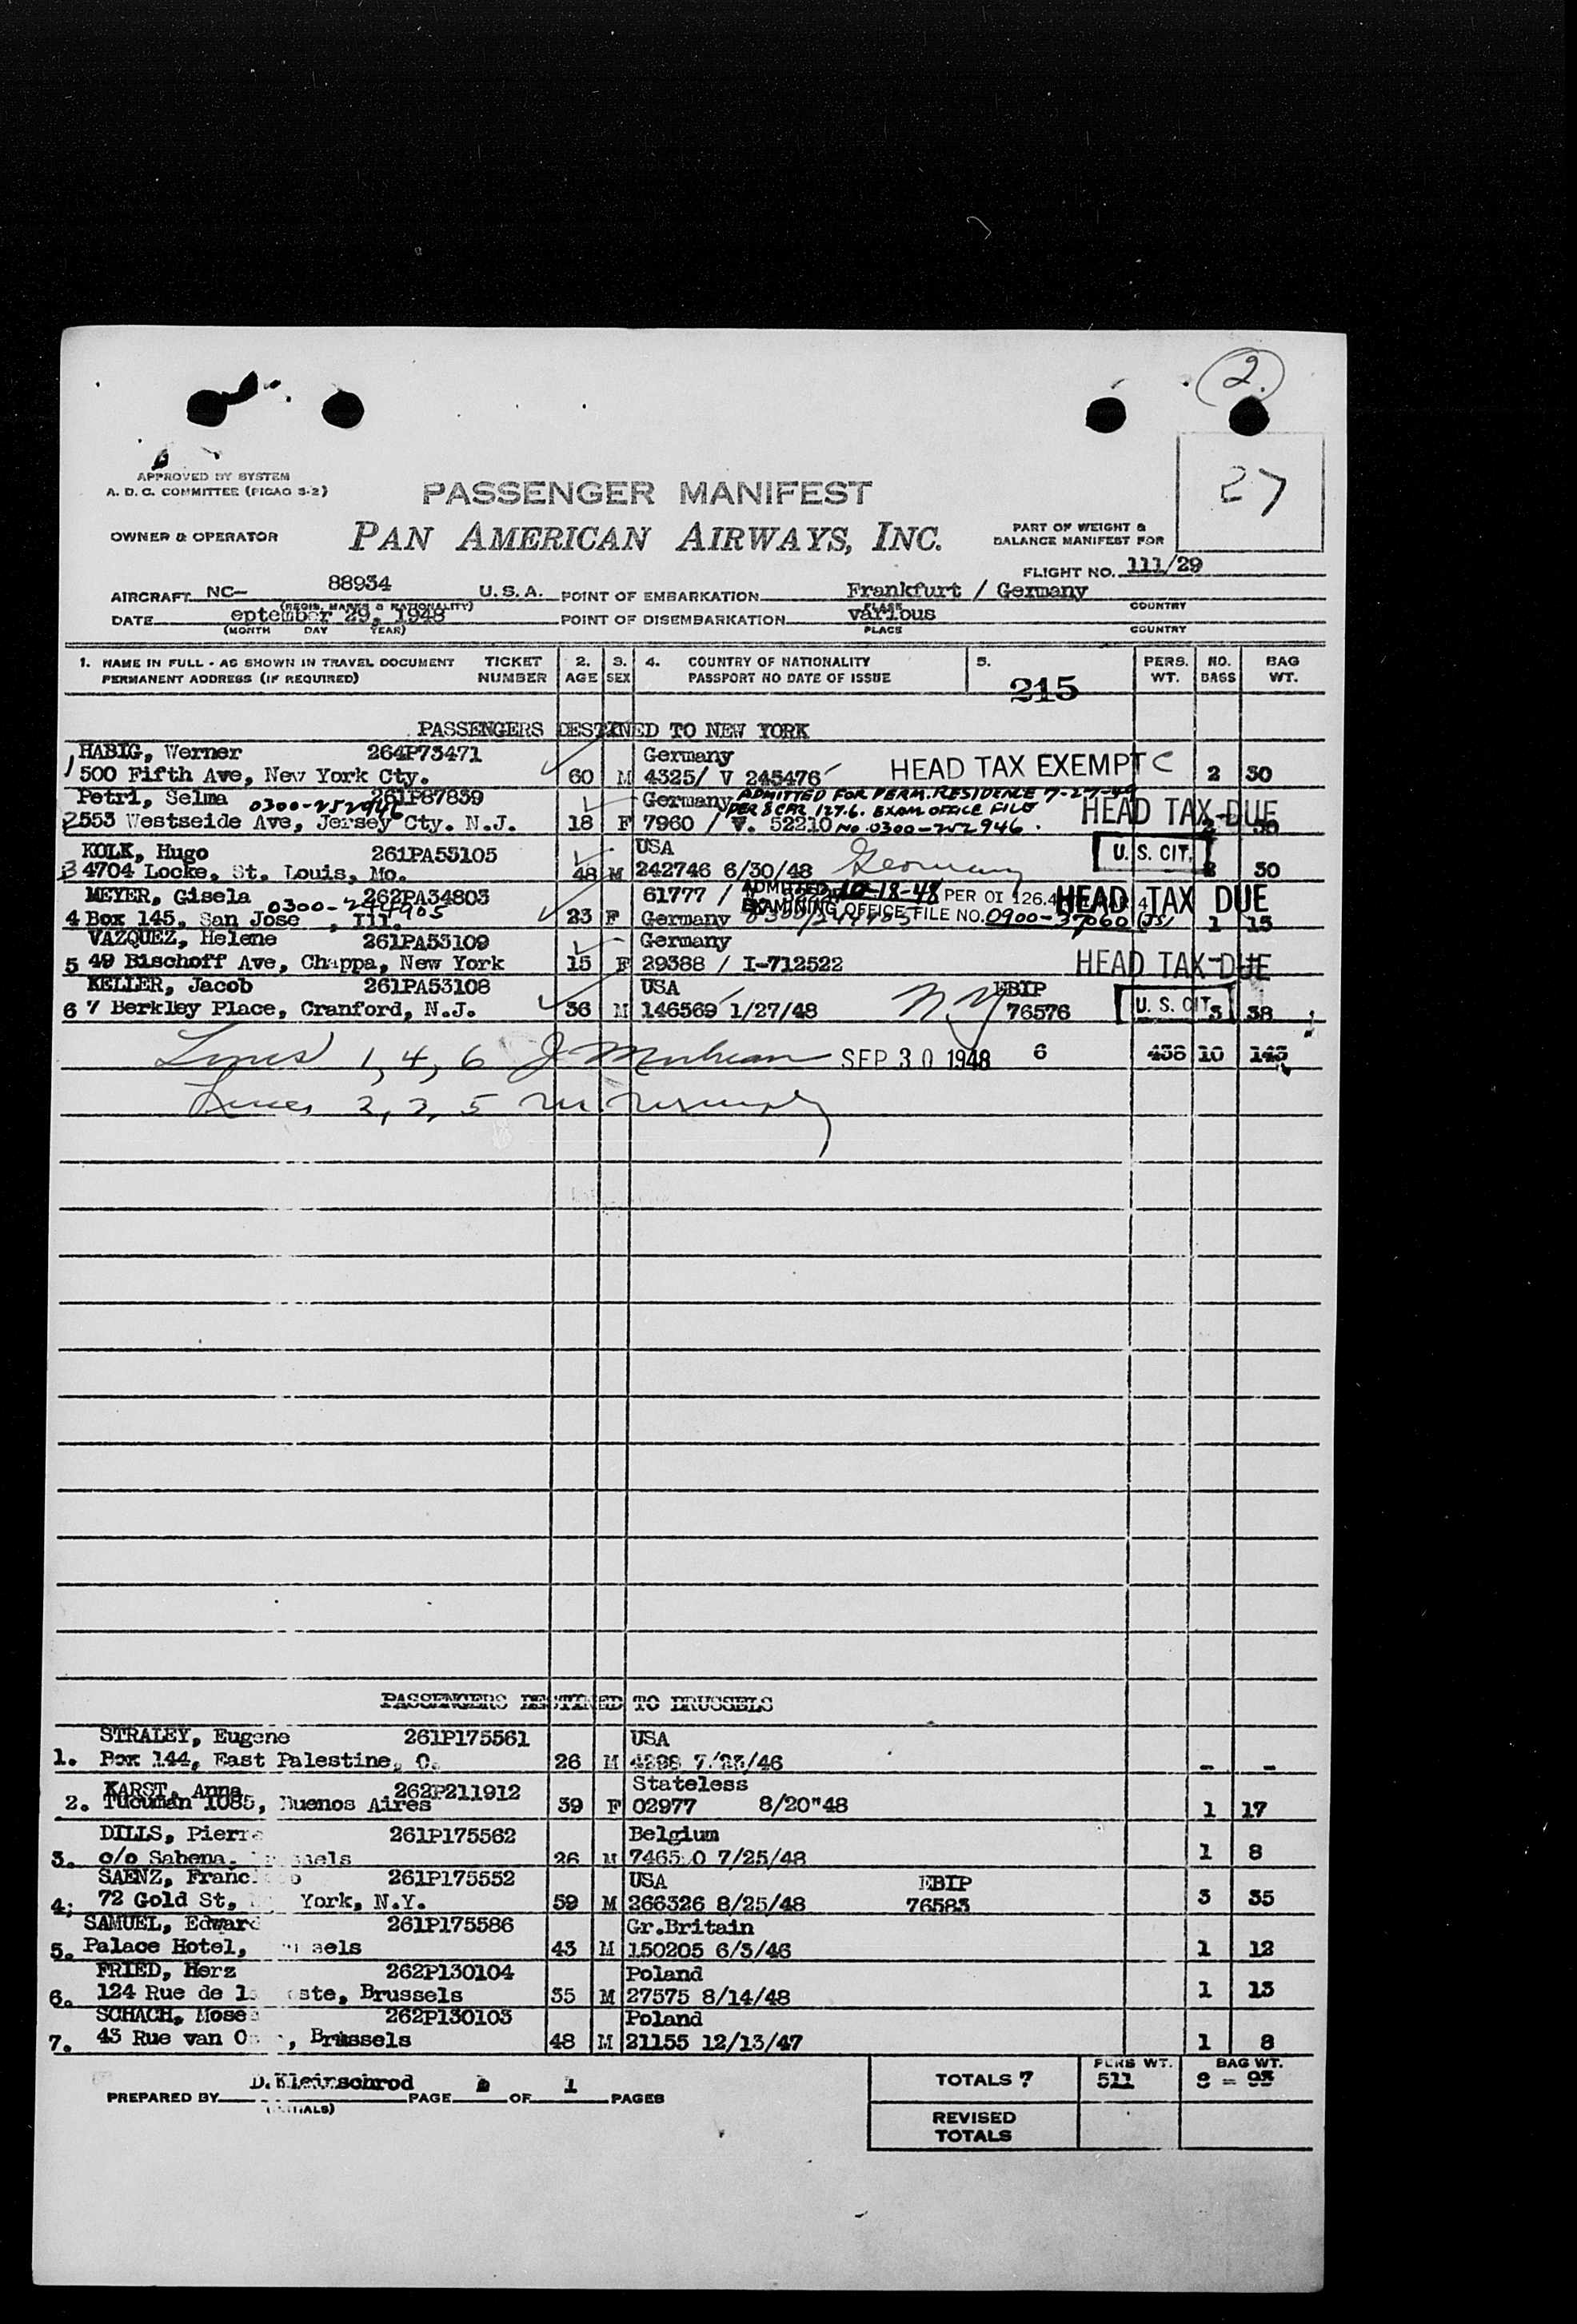 2.
27
APPROVED BY SYSTEM
A. D. C. COMMITTEE (PICAO S-2)
PASSENGER MANIFEST
OWNER & OPERATOR
PAN AMERICAN AIRWAYS, INC.
PART OF WEIGHT &
BALANCE MANIFEST FOR
FLIGHT NO. 111/29
AIRCRAFT NC- 88934 U.S.A. POINT OF EMBARKATION Frankfurt / Germany
(REGIS. MARKS & NATIONALITY) PLACE COUNTRY
DATE eptember 29, 1948 POINT OF DISEMBARKATION various
(MONTH DAY YEAR) PLACE COUNTRY
1. NAME IN FULL - AS SHOWN IN TRAVEL DOCUMENT TICKET 2. 3. 4. COUNTRY OF NATIONALITY 5. PERS. NO. BAG
PERMANENT ADDRESS (IF REQUIRED) NUMBER AGE SEX PASSPORT NO DATE OF ISSUE WT. BAGS WT.
215
PASSENGERS DESTINED TO NEW YORK
HABIG, Werner 264P73471 Germany
1 500 Fifth Ave, New York Cty. 60 M 4325/ V 245476 HEAD TAX EXEMPT C 2 30
Petri, Selma 0300-252946 261P87839 Germany ADMITTED FOR PERM. RESIDENCE 7-27-49
PER 8 CFR 127.6. EXAM OFFICE FILE HEAD TAX DUE
2 553 Westseide Ave, Jersey Cty. N.J. 18 F 7960 / V. 52210 No. 0300-252946. 30
KOLK, Hugo 261PA53105 USA U. S. CIT.
3 4704 Locke, St. Louis, Mo. 48 M 242746 6/30/48 Germany 30
MEYER, Gisela 262PA34803 61777 / ADMITTED 10-18-48 PER OI 126.4 HEAD TAX DUE
EXAMINING OFFICE FILE NO. 0900-37060 (JS)
4 Box 145, San Jose , Ill. 23 F Germany 1 15
VAZQUEZ, Helene 261PA53109 Germany
5 49 Bischoff Ave, Chappa, New York 15 F 29388 / I-712522 HEAD TAX DUE
KELLER, Jacob 261PA53108 USA EBIP
6 7 Berkley Place, Cranford, N.J. 36 M 146569 1/27/48 N.Y 76576 U. S. CIT. 3 38
Lines 1, 4, 6 SEP 30 1948 6 438 10 143
Lines 2, 3, 5
PASSENGERS DESTINED TO BRUSSELS
STRALEY, Eugene 261P175561 USA
1. Box 144, East Palestine, O. 26 M 4298 7/23/46 - -
KARST, Anna 262P211912 Stateless
2. Tucuman 1085, Buenos Aires 39 F 02977 8/20"48 1 17
DILLS, Pierre 261P175562 Belgium 1 8
3. c/o Sabena. 26 M 7/25/48
SAENZ, 261P175552 USA EBIP
4; 72 Gold St, York, N.Y. 59 M 266326 8/25/48 76583 3 35
SAMUEL, Edward 261P175586 Gr.Britain
5. Palace Hotel, 43 M 150205 6/3/46 1 12
FRIED, Herz 262P130104 Poland
6. 124 Rue de Brussels 35 M 27575 8/14/48 1 13
SCHACH, Moses 262P130103 Poland
7. 43 Rue van , Brussels 48 M 21155 12/13/47 1 8
PERS WT. BAG WT.
D.Kleinschrod TOTALS 7 511 8 - 93
PREPARED BY PAGE OF 1 PAGES
(INITIALS)
REVISED
TOTALS